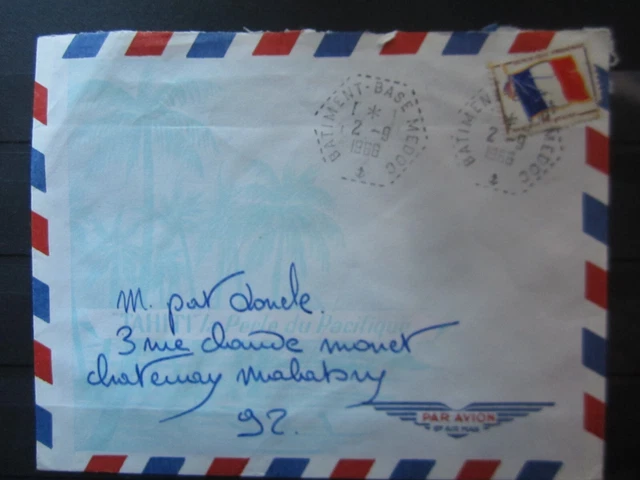 BATIMENT-BASE MEDOC
1 *
2-9
1966
BATIMENT MEDOC
*
2-9
1966
M. pat doucle.
TAHITI la Perle du Pacifique
3 rue claude monet
chatenay malabry
92.
PAR AVION
BY AIR MAIL